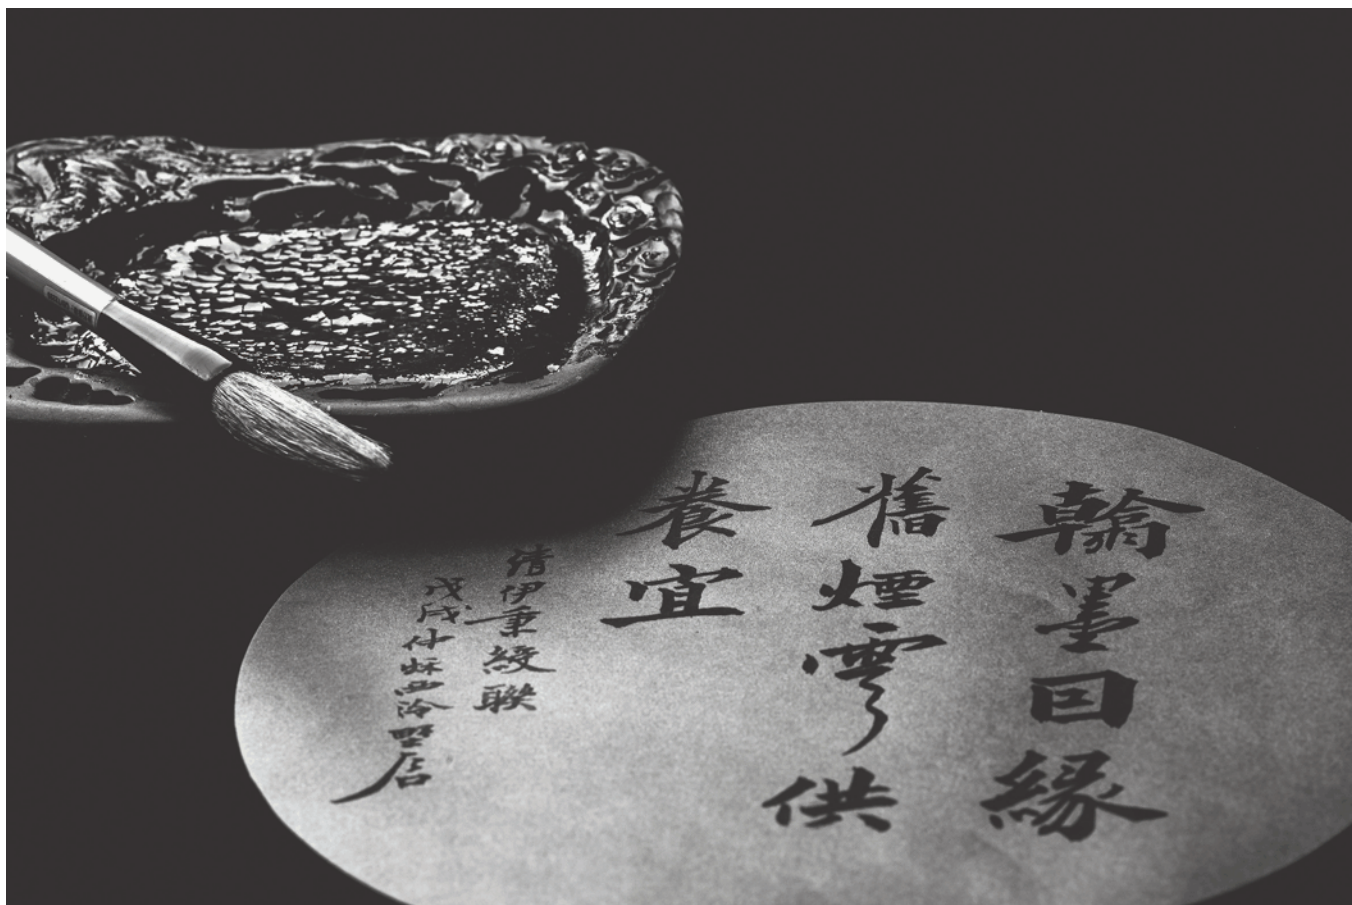 翰墨囙緣
舊煙雲供
養宜
清伊秉綬聯
戊戌仲秋西泠墅居